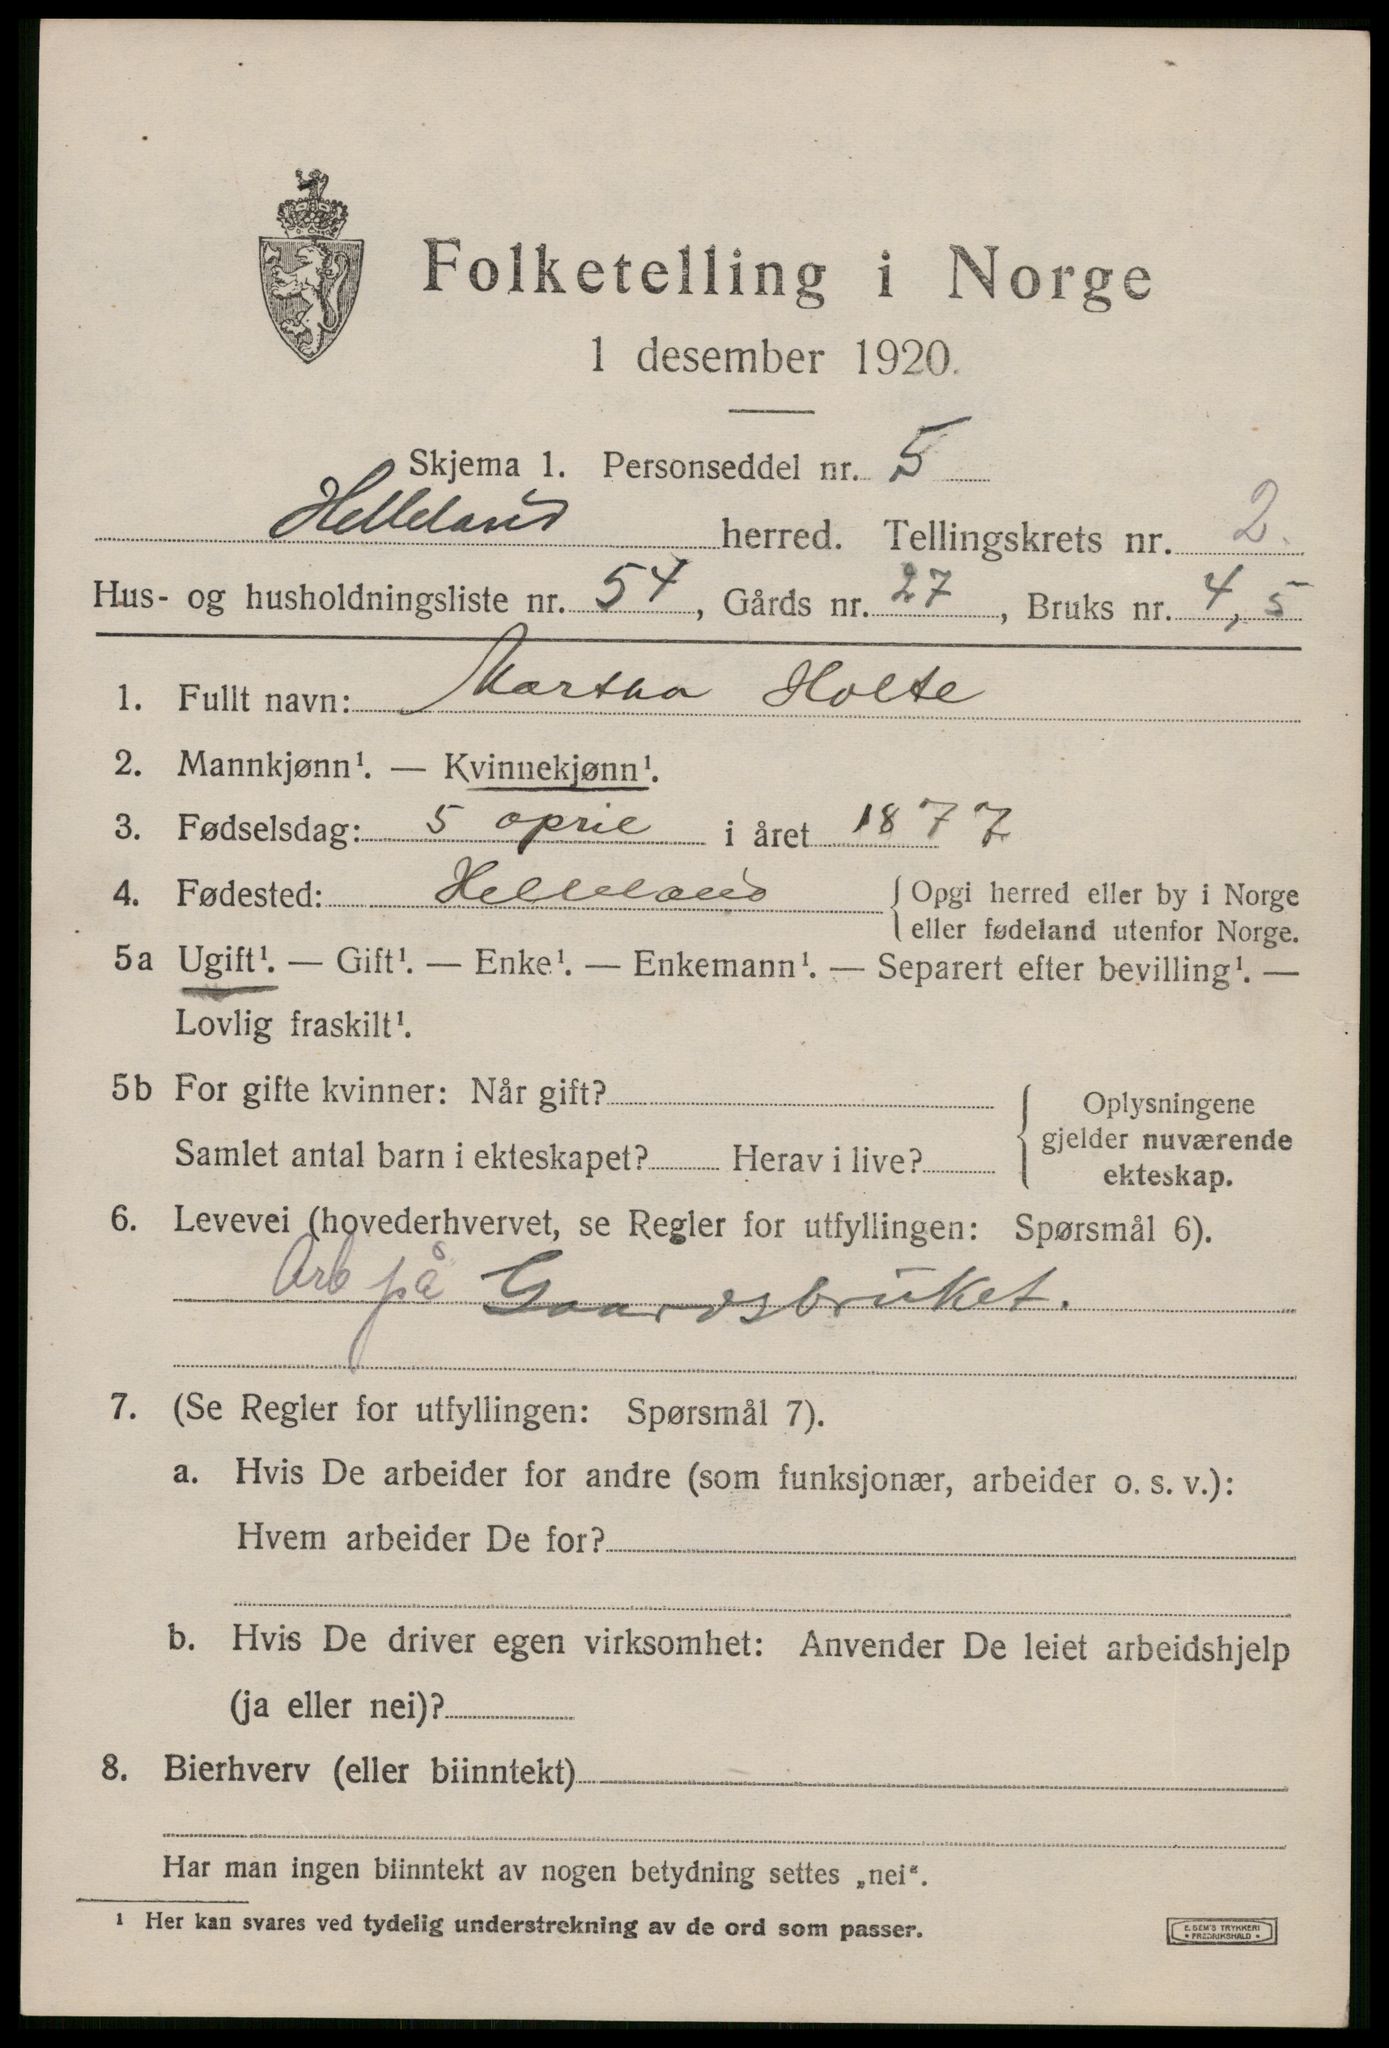 Folketelling i Norge
1 desember 1920.
Skjema 1. Personseddel nr. 5
Helleland herred. Tellingskrets nr. 2.
Hus- og husholdningsliste nr. 54, Gårds nr. 27, Bruks nr. 4, 5
1. Fullt navn: Martha Holte
2. Mannkjønn¹. — Kvinnekjønn¹.
3. Fødselsdag: 5 april i året 1877
4. Fødested: Helleland { Opgi herred eller by i Norge
eller fødeland utenfor Norge.
5a Ugift¹. — Gift¹. — Enke¹. — Enkemann¹. — Separert efter bevilling¹. —
Lovlig fraskilt¹.
5b For gifte kvinner: Når gift?
Samlet antal barn i ekteskapet? Herav i live?
{ Oplysningene
gjelder nuværende
ekteskap.
6. Levevei (hovederhvervet, se Regler for utfyllingen: Spørsmål 6).
Arb på Gaardsbruket.
7. (Se Regler for utfyllingen: Spørsmål 7).
a. Hvis De arbeider for andre (som funksjonær, arbeider o. s. v.):
Hvem arbeider De for?
b. Hvis De driver egen virksomhet: Anvender De leiet arbeidshjelp
(ja eller nei)?
8. Bierhverv (eller biinntekt)
Har man ingen biinntekt av nogen betydning settes „nei“.
¹ Her kan svares ved tydelig understrekning av de ord som passer.
E. SEM'S TRYKKERI
• FREDRIKSHALD •